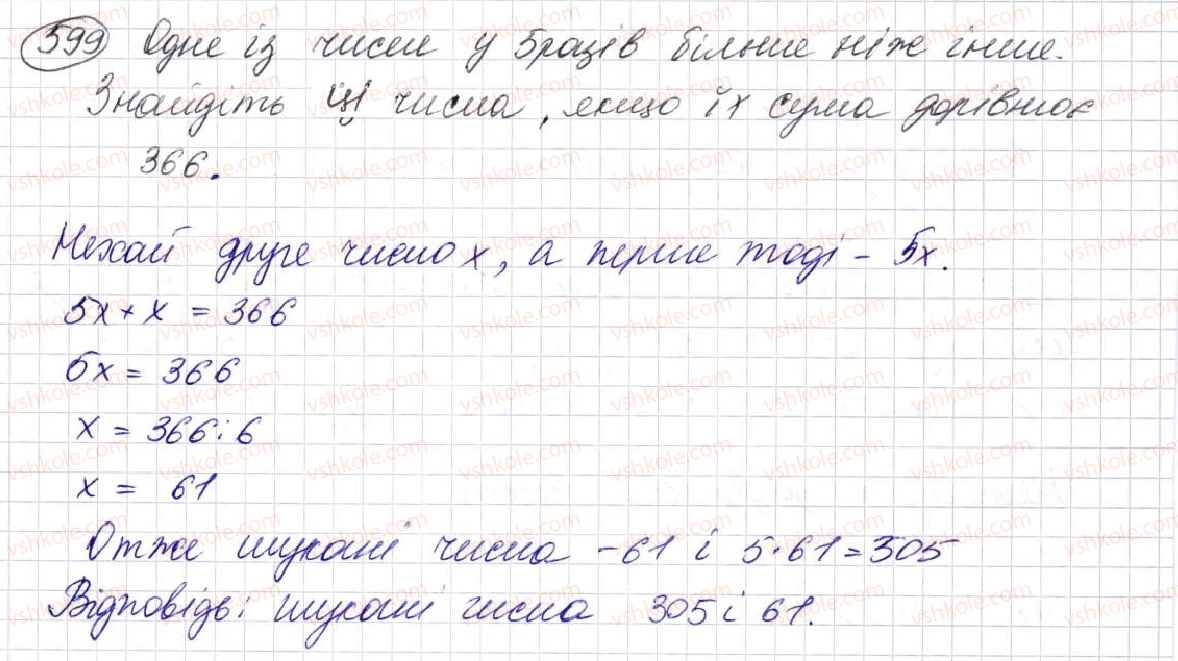 599 Одне із чисел у 5 разів більше ніж інше.
Знайдіть ці числа, якщо їх сума дорівнює
366.
Нехай друге число x, а перше тоді – 5x.
5x + x = 366
6x = 366
x = 366 : 6
x = 61
Отже шукані числа – 61 і 5 · 61 = 305
Відповідь: шукані числа 305 і 61.
vshkole.com